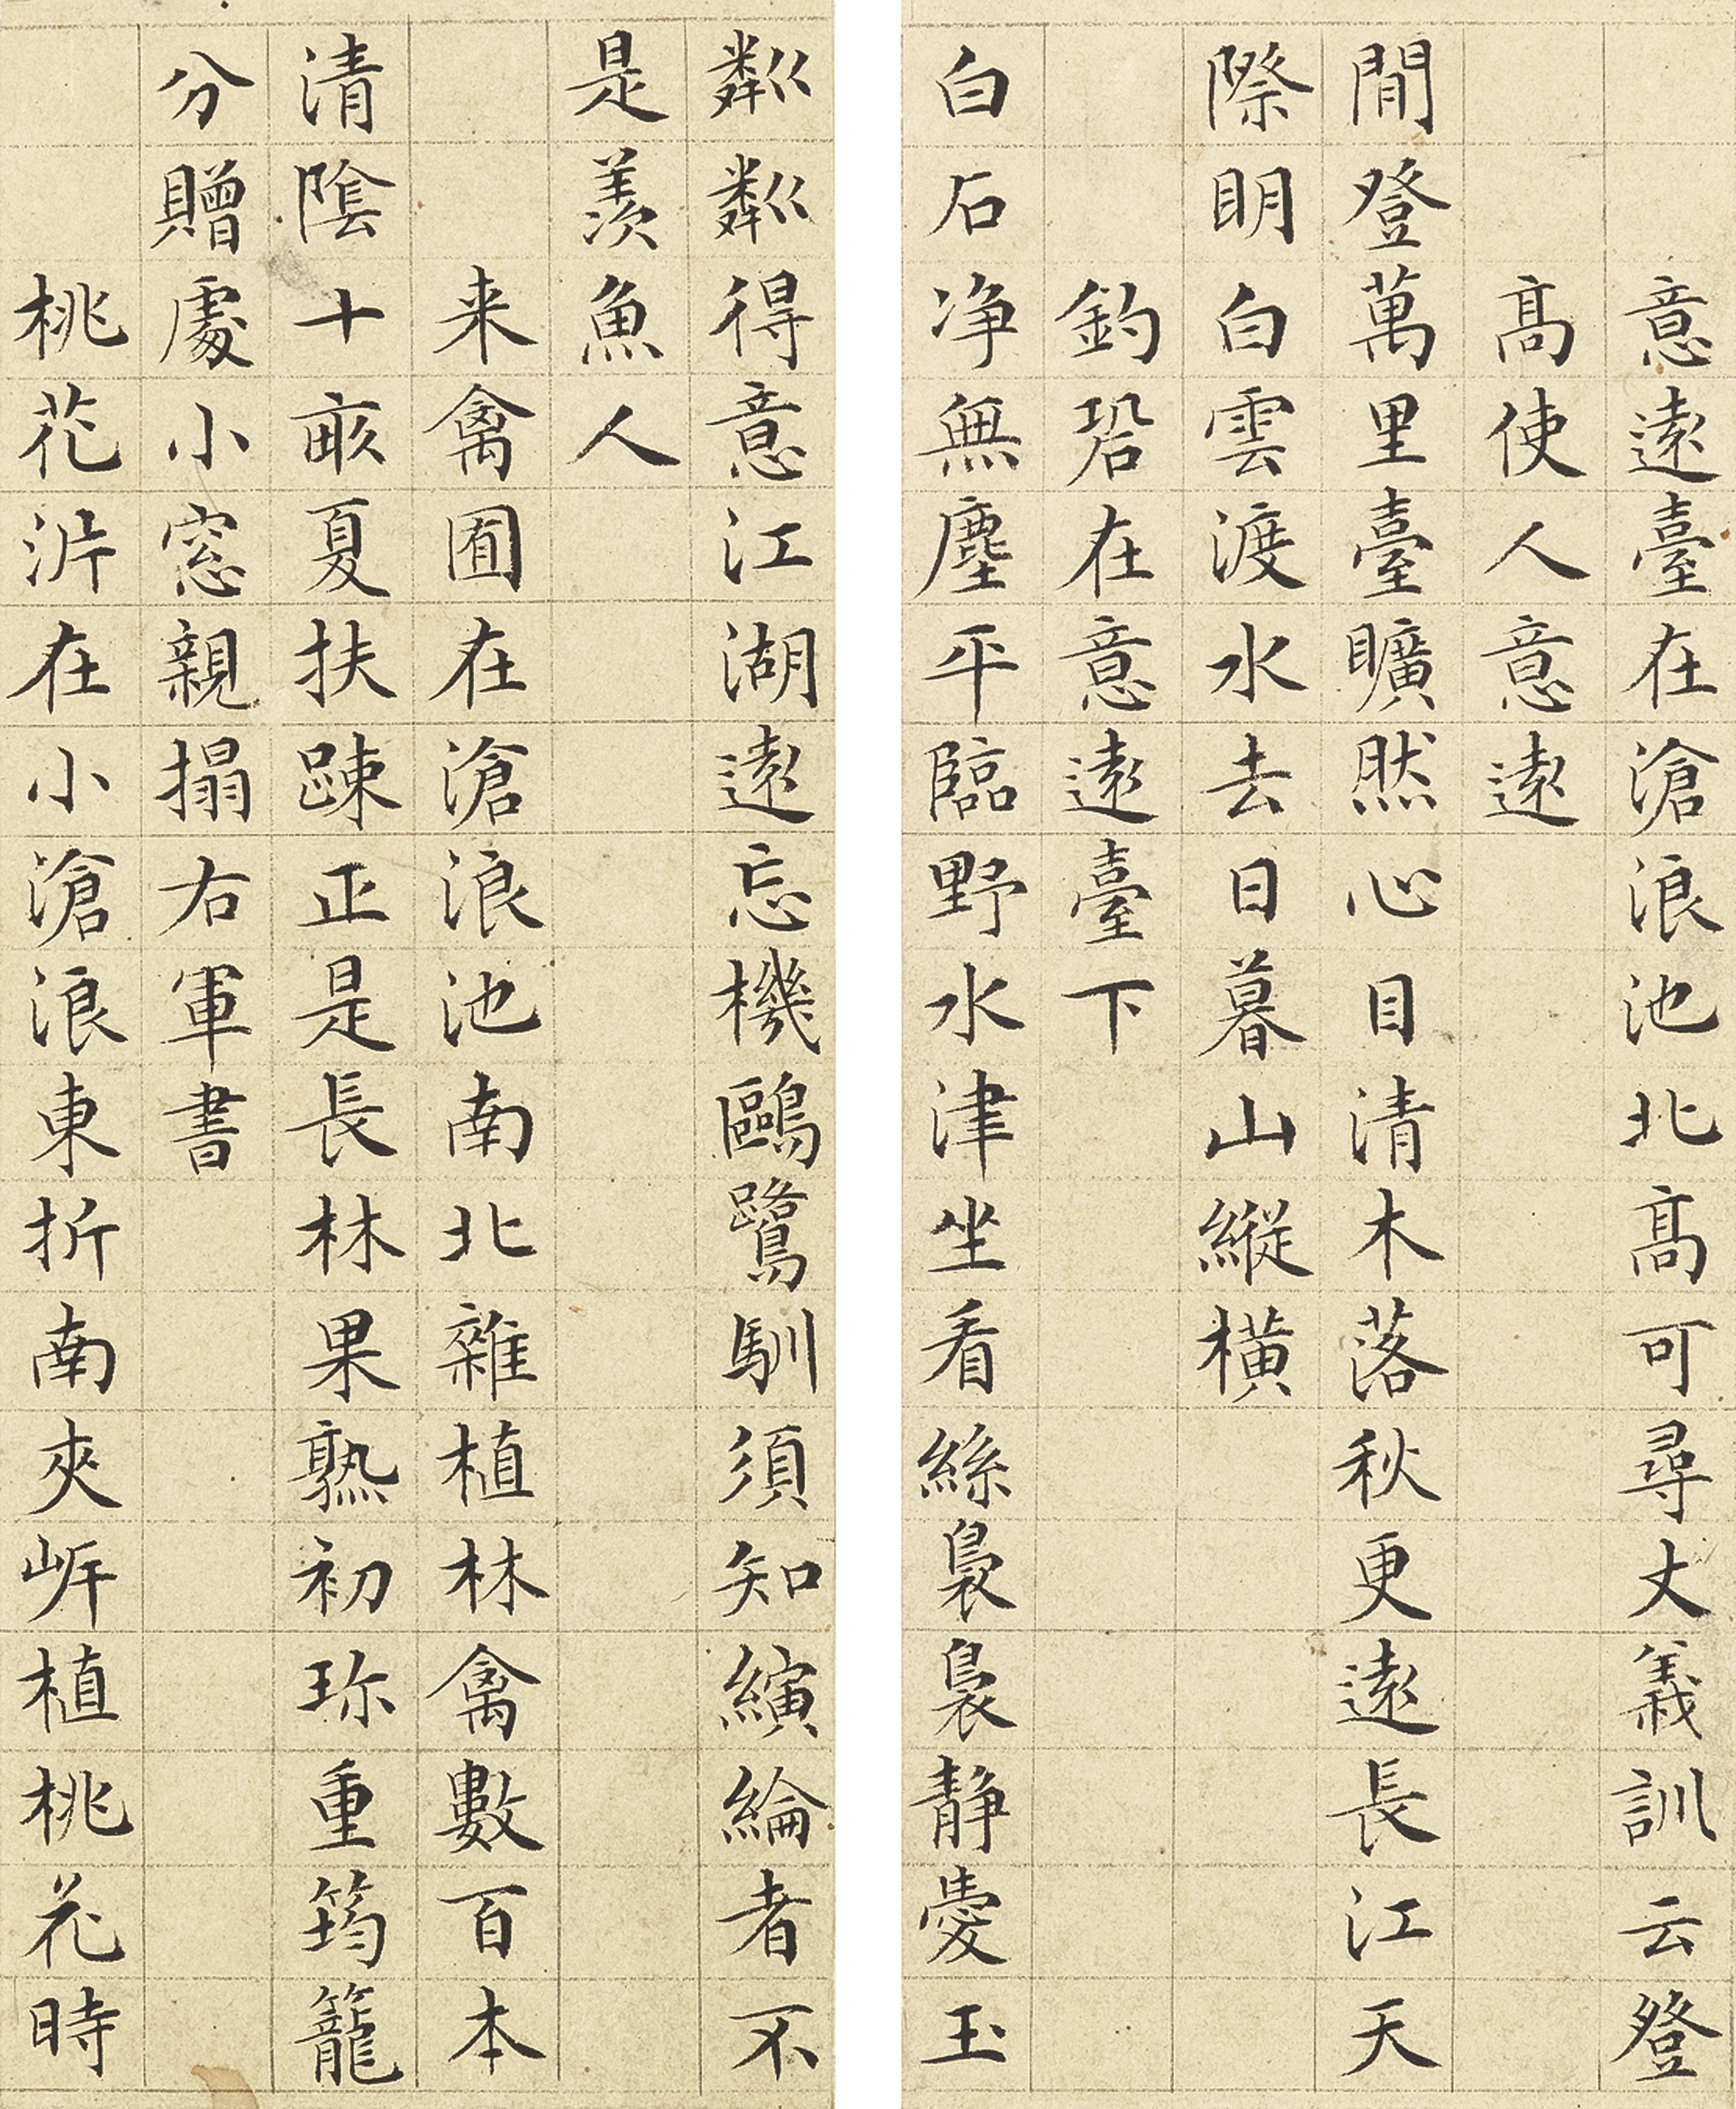 意遠臺在滄浪池北高可尋丈義訓云登
髙使人意遠
閒登萬里臺曠然心目清木落秋更遠長江天
際眀白雲渡水去日暮山縱橫
釣䂬在意遠臺下
白石净無塵平臨野水津坐看絲裊裊静愛玉
粼粼得意江湖遠忘機鷗鷺馴須知縯綸者不
是羨魚人
来禽囿在滄浪池南北雜植林禽數百本
清隂十畝夏扶踈正是長林果熟初珎重筠籠
分贈處小窓親搨右軍書
桃花沜在小滄浪東折南夾㟁植桃花時